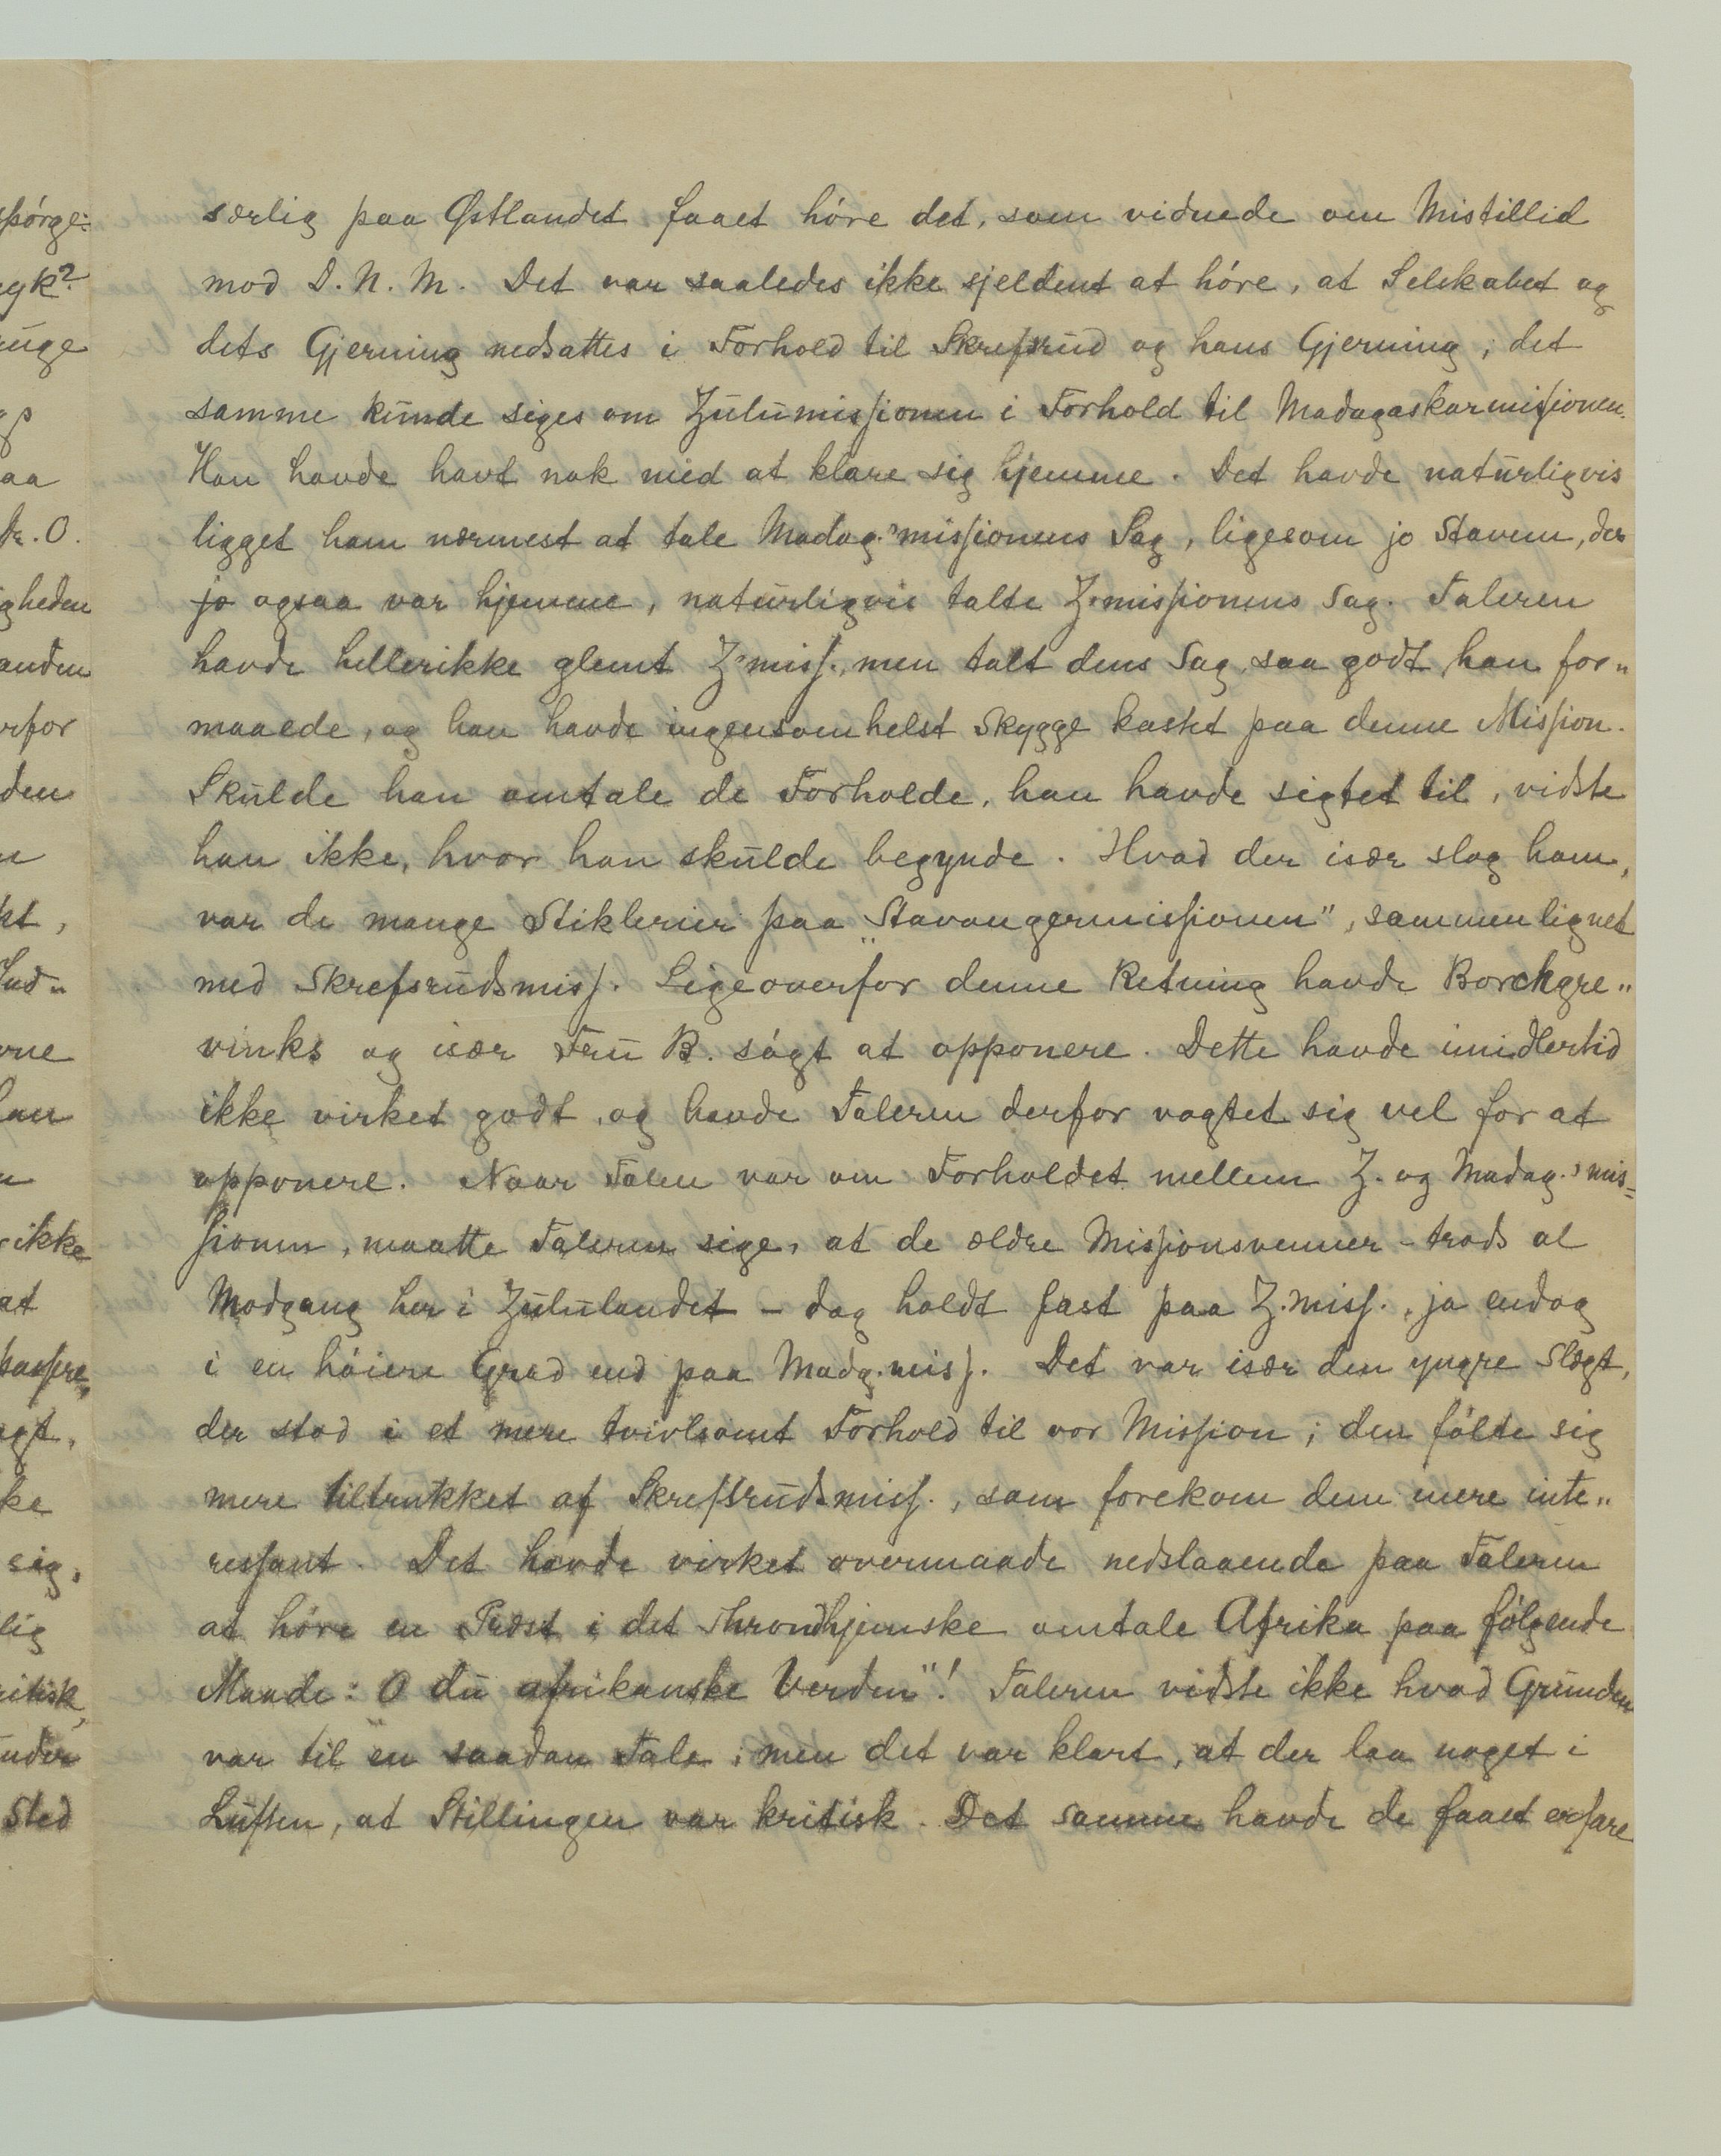 særlig paa Østlandet faaet høre det, som vidnede om Mistillid
mod D. N. M. Det var saaledes ikke sjeldent at høre, at Selskabet og
dets Gjerning nedsattes i Forhold til Skrefsrud og hans Gjerning; det
samme kunde siges om Zulumissionen i Forhold til Madagaskarmissionen.
Han havde havt nok med at klare sig hjemme. Det havde naturligvis
ligget ham nærmest at tale Madag.missionens Sag, ligesom jo Stavem, der
jo ogsaa var hjemme, naturligvis talte Z.missionens Sag. Taleren
havde hellerikke glemt Z.miss., men talt dens Sag, saa godt han for„
maaede, og han havde ingensomhelst Skygge kastet paa denne Mission.
Skulde han omtale de Forholde, han havde sigtet til, vidste
han ikke, hvor han skulde begynde. Hvad der især slog ham,
var de mange Stiklerier paa „Stavangermissionen", sammenlignet
med Skrefsrudsmiss. Ligeoverfor denne Retning havde Borchgre„
vinks og især Fru B. søgt at opponere. Dette havde imidlertid
ikke virket godt, og havde Taleren derfor vogtet sig vel for at
opponere. Naar Talen var om Forholdet mellem Z. og Madag.mis=
sionen, maatte Taleren sige, at de ældre Missionsvenner – trods al
Modgang her i Zululandet – dog holdt fast paa Z.miss., ja endog
i en høiere Grad end paa Madg.miss. Det var især den yngre Slægt,
der stod i et mere tvivlsomt Forhold til vor Mission; den følte sig
mere tiltrukket af Skrefsrudsmiss., som forekom dem mere inte„
ressant. Det havde virket overmaade nedslaaende paa Taleren
at høre en Præst i det Throndhjemske omtale Afrika paa følgende
Maade: „O du afrikanske Verden"! Taleren vidste ikke hvad Grunden
var til en saadan Tale; men det var klart, at der laa noget i
Luften, at Stillingen var kritisk. Det samme havde de faaet erfare